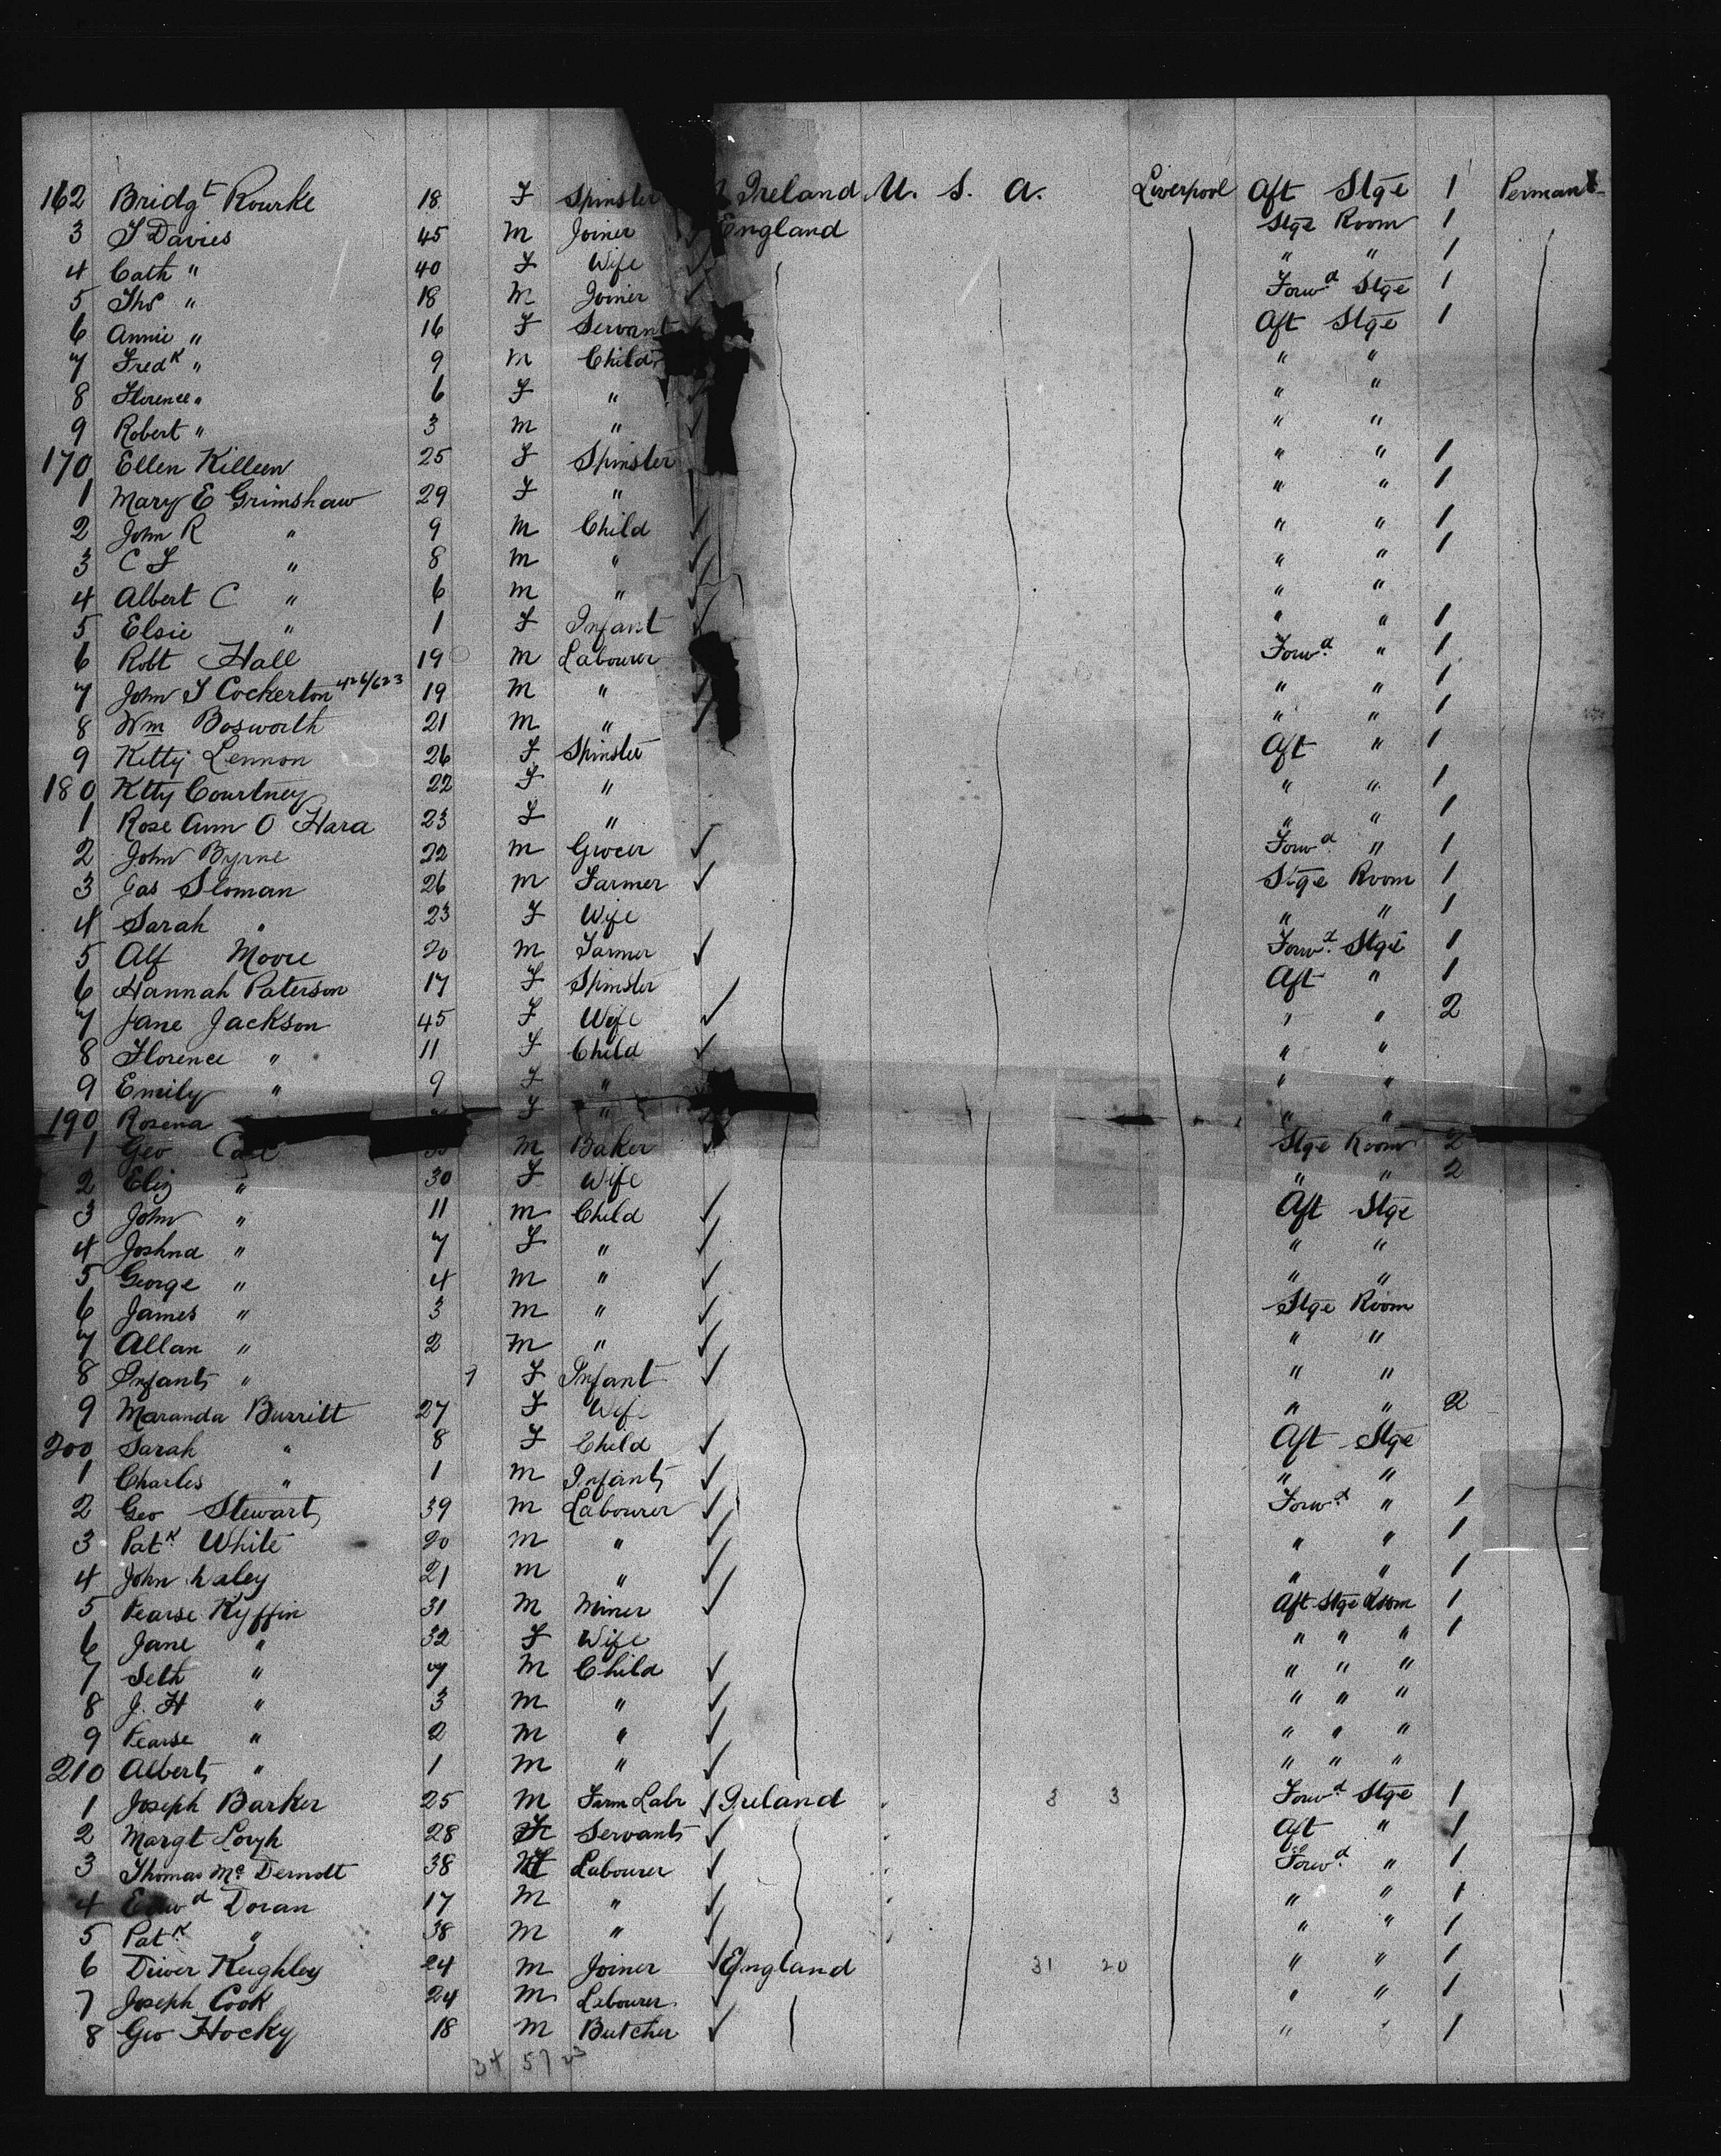 162 Bridgt Rourke 18 F Spinster Ireland U. S. A. Liverpool Aft Stge 1 Permant
3 T Davies 45 M Joiner England Stge Room 1
4 Cath " 40 F Wife " " 1
5 Thos " 18 M Joiner Forwd Stge 1
6 Annie " 16 F Servant Aft Stge 1
7 Fredk " 9 M Child " "
8 Florence " 6 F " " "
9 Robert " 3 M " " "
170 Ellen Killeen 25 F Spinster " " 1
1 Mary E Grimshaw 29 F " " " 1
2 John R " 9 M Child " " 1
3 C F " 8 M " " " 1
4 Albert C " 6 M " " "
5 Elsie " 1 F Infant " " 1
6 Robt Hall 19 M Labourer Forwd " 1
7 John S Cockerton 426/623 19 M " " " 1
8 Wm Bosworth 21 M " " " 1
9 Kitty Lennon 26 F Spinster Aft " 1
180 Ktty Courtney 22 F " " " 1
1 Rose Ann O Hara 23 F " " " 1
2 John Byrne 22 M Grocer Forwd " 1
3 Jas Sloman 26 M Farmer Stge Room 1
4 Sarah " 23 F Wife " " 1
5 Alf Moore 20 M Farmer Forwd Stge 1
6 Hannah Paterson 17 F Spinster Aft " 1
7 Jane Jackson 45 F Wife " " 2
8 Florence " 11 F Child " "
9 Emily " 9 F " " "
190 Rosena F " " "
1 Geo M Baker Stge Room 2
2 Eliz " 30 F Wife " " 2
3 John " 11 M Child Aft Stge
4 Joshna " 7 F " " "
5 George " 4 M " " "
6 James " 3 M " Stge Room
7 Allan " 2 M " " "
8 Infant " 1 F Infant " "
9 Maranda Burritt 27 F Wife " " 2
200 Sarah " 8 F Child Aft Stge
1 Charles " 1 M Infant " "
2 Geo Stewart 39 M Labourer Forwd " 1
3 Patk White 20 M " " " 1
4 John 21 M " " " 1
5 Pearse Kyffin 31 M Miner Aft Stge Room 1
6 Jane " 32 F Wife " " " 1
7 Seth " 7 M Child " " "
8 J. H " 3 M " " " "
9 Pearse " 2 M " " " "
210 Albert " 1 M " " " "
1 Joseph Barker 25 M Farm Labr Ireland 3 3 Forwd Stge 1
2 Margt 28 F Servant Aft " 1
3 Thomas Mc Dermott 38 M Labourer Forwd " 1
4 Edwd Doran 17 M " " " 1
5 Patk " 38 M " " " 1
6 Keighley 24 M Joiner England 31 20 " " 1
7 Joseph Cook 24 M Labourer " " 1
8 Geo Hocky 18 M Butcher " " 1
34 57 23